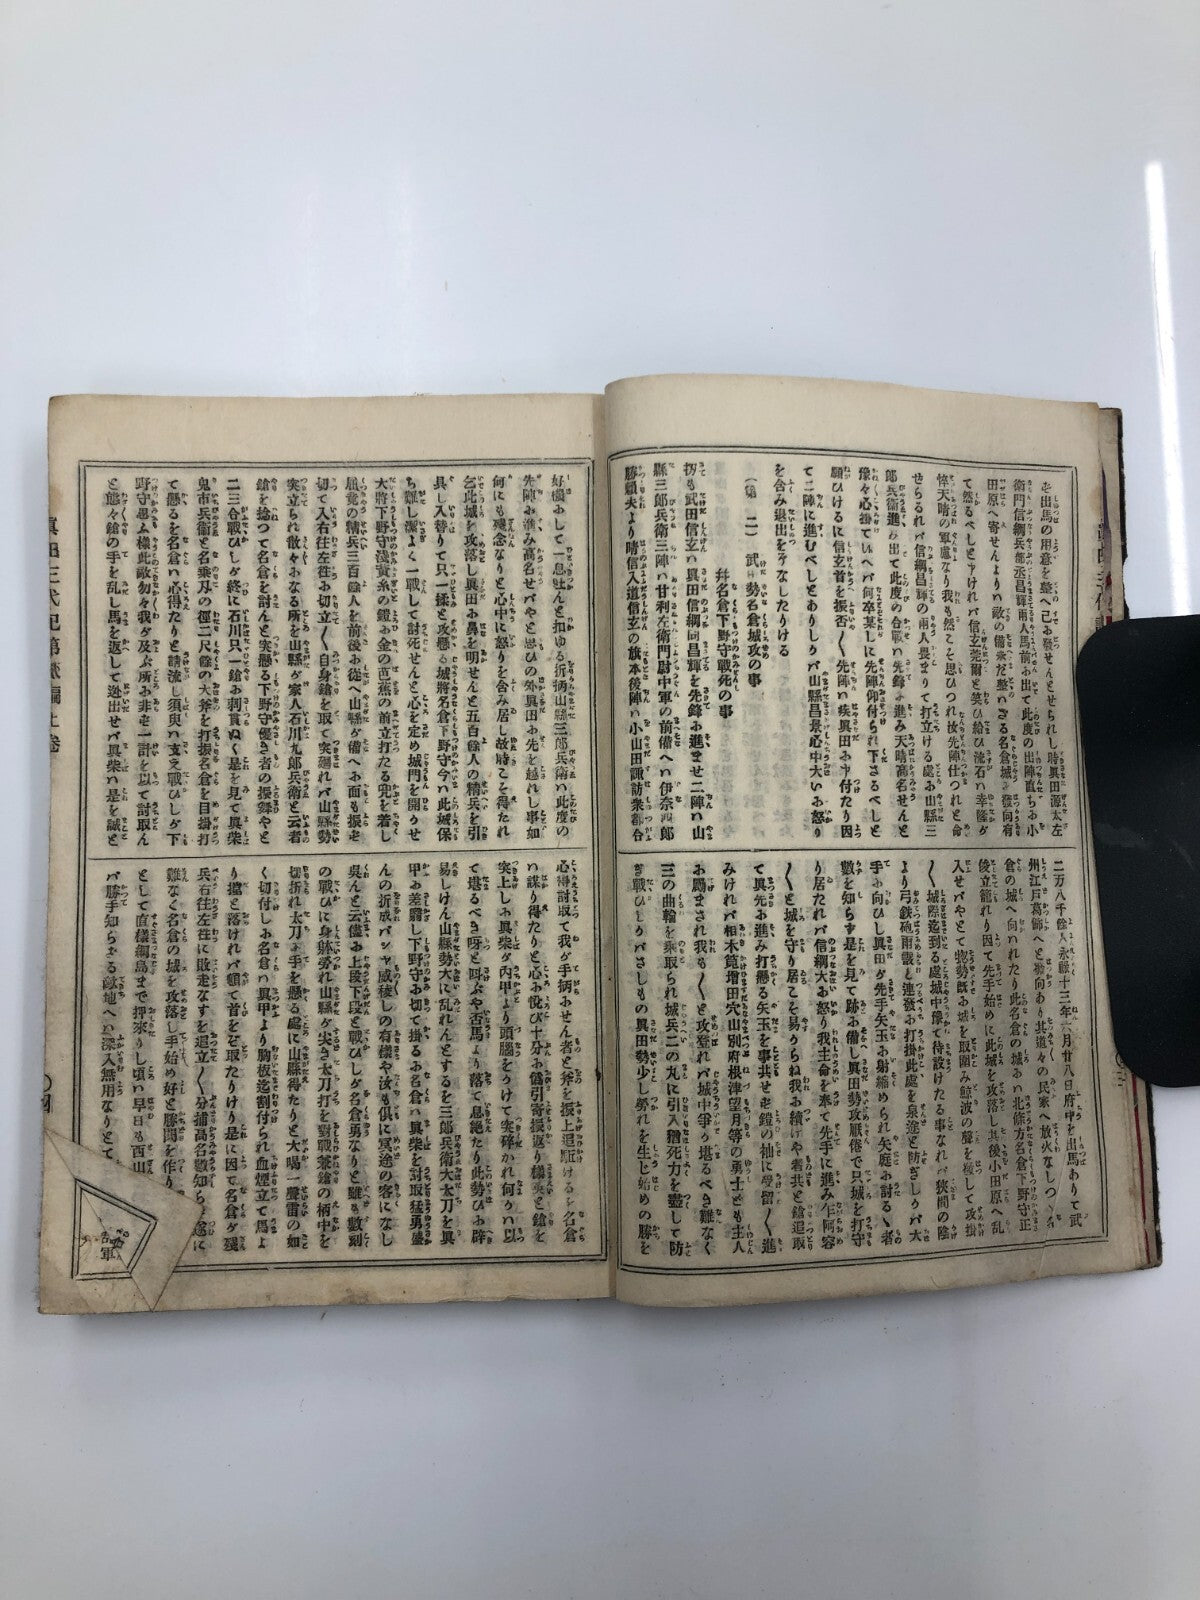 き出馬の用意を整へ己お發せんとせられし時眞田源太左
衛門信綱兵部丞昌輝兩人馬前お出て此度の出陣直ちお小
田原へ寄せんよりハ敵の備未だ整ハざる名倉城お發向有
て然るべしと申けれバ信玄莞爾と笑ひ給ひ流石ハ幸隆が
悴天晴の軍慮なり我も然こそ思ひつれ汝先陣仕つれと命
せらるれバ信綱昌輝の兩人畏まりて打立ける處お山縣三
郎兵衛進み出て此度の合戰ハ先鋒お進み天晴高名せんと
豫々心掛ていへバ何卒某しに先陣仰付られ下さるべしと
願ひけるに信玄首を振否〱先陣ハ疾眞田お申付たり因
て二陣に進むべしとありしかバ山縣昌景心中大いお怒り
を含み退出をぞなしたりける
（第二）武田勢名倉城攻の事
并名倉下野守戰死の事
扨も武田信玄ハ眞田信綱同昌輝を先鋒お進ませ二陣ハ山
縣三郎兵衛三陣ハ甘利左衛門尉中軍の前備へハ伊奈四郎
勝頼夫より晴信入道信玄の旗本後陣ハ小山田諏訪衆都合
二万八千餘人永祿十三年六月廿八日府中を出馬ありて武
州江戸葛飾へと動向あり其道々の民家へ放火なしつゝ名
倉の城へ向ハれたり此名倉の城おハ北條方名倉下野守正
後立籠れり因て先手始めに此城を攻落し其後小田原へ乱
入せバやとて惣勢既お城を取圍み鯨波の聲を發して攻掛
〱城際迄到る處城中豫て待設けたる事なれバ狹間の陰
より弓鉄砲雨霰と連發お打掛此處を泉途と防ぎしかバ大
手お向ひし眞田が先手矢玉お射縮められ矢庭お討るゝ者
數を知らず是を見て跡お備し眞田勢攻厭倦で只城を打守
り居たれバ信綱大お怒り我主命を奉て先手に進み乍阿容
〱と城を守り居こを易からね我お續けや者共と鎗追取
て眞先お進み打懸る矢玉を事共せず鎧の袖に受留〱進
みけれバ相木筧増田穴山別府根津望月等の勇士とも主人
お勵まされ我も〱と攻登れバ城中爭か堪るべき難なく
三の曲輪を乘取られ城兵二の丸に引入猶死力を盡して防
ぎ戰ひしかバさしもの眞田勢少し勞れを生じ始めの勝を
好機おして一息吐んと扣ゆる折柄山縣三郎兵衛ハ此度の
先陣お進み高名せバやと思ひの外眞田お先を越れし事如
何にも殘念なりと心中に怒りを含み居し故時こを得たれ
乞此城を攻落し眞田お鼻を明せんと五百餘人の精兵を引
具し入替りて只一揉と攻懸る城將名倉下野守今ハ此城保
ち難し潔よく一戰して討死せんと心を定め城門を開かせ
大將下野守淺黄糸の鎧お金の芭蕉の前立打たる兜を着し
屈竟の精兵三百餘人を前後お從へ山縣が備へお面も振ず
切て入右往左往お切立〱自身鎗を取て突廻れバ山縣勢
突立られ散々おなる所を山縣が家人石川九郎兵衛と云者
鎗を捻つて名倉を討んと突懸る下野守優き者の振舞やと
二三合戰ひしが終に石川只一鎗お刺貫ぬく是を見て眞柴
鬼市兵衛と名乘刃の徑二尺餘の大斧を打振名倉を目掛打
て懸るを名倉ハ心得たりと請流し須臾ハ支え戰ひしが下
野守思ふ樣此敵勿々我が及ぶ所お非ず一計を以て討取ん
と態々鎗の手を乱し馬を返して逃出せバ眞柴ハ是を誠と
心得討取て我が手柄おせん者と斧を振上追駈けるを名倉
ハ謀り得たりと心お悦び十分お僞引寄振返り樣眞と鎗を
突上しお眞柴が内甲より頭腦をかけて突碎かれ何かハ以
て堪るべき呀と叫ぶや否馬より落て息絶たり此勢ひお辟
易しけん山縣勢大に乱れんとするを三郎兵衛大太刀を眞
甲お差翳し下野守お切て掛るお名倉ハ眞柴を討取猛勇盛
んの折成バ少しも威稜しの有樣や汝も俱に冥途の客になし
呉んと云儘お上段下段と戰ひしが名倉勇なりと雖も數刻
の戰ひに身躰勞れ山縣が尖き太刀打を對戰兼鎗の柄中を
切折れ太刀お手を懸る處に山縣得たりと大喝一聲雷の如
く切付しお名倉ハ眞甲より胸板迄割付られ血煙立て馬よ
り撞と落けれバ頓て首をぞ取たりけり是に因て名倉が殘
兵右往左往に敗走なすを追立〱分捕高名數知らず遂に
難なく名倉の城を攻落し手始め好と勝鬨を作り
として直樣綱島まで押來りし頃ハ早日も西山
バ勝手知らざる敵地へハ深入無用なりとて
眞田三代記第貮編上卷
〇四